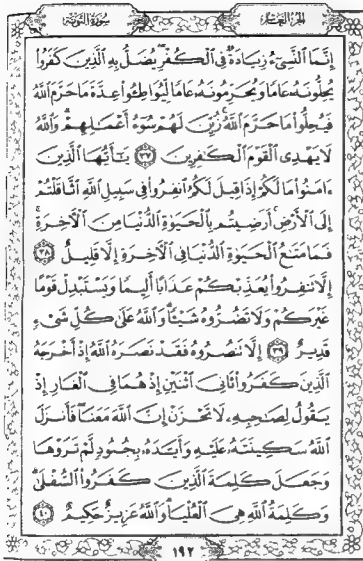 الجزء العاشر
سورة التوبة
إِنَّمَا ٱلنَّسِىٓءُ زِيَادَةٌ فِى ٱلْكُفْرِ يُضَلُّ بِهِ ٱلَّذِينَ كَفَرُوا۟
يُحِلُّونَهُۥ عَامًا وَيُحَرِّمُونَهُۥ عَامًا لِّيُوَاطِـُٔوا۟ عِدَّةَ مَا حَرَّمَ ٱللَّهُ
فَيُحِلُّوا۟ مَا حَرَّمَ ٱللَّهُ زُيِّنَ لَهُمْ سُوٓءُ أَعْمَـٰلِهِمْ وَٱللَّهُ
لَا يَهْدِى ٱلْقَوْمَ ٱلْكَـٰفِرِينَ ٣٧ يَـٰٓأَيُّهَا ٱلَّذِينَ
ءَامَنُوا۟ مَا لَكُمْ إِذَا قِيلَ لَكُمُ ٱنفِرُوا۟ فِى سَبِيلِ ٱللَّهِ ٱثَّاقَلْتُمْ
إِلَى ٱلْأَرْضِ أَرَضِيتُم بِٱلْحَيَوٰةِ ٱلدُّنْيَا مِنَ ٱلْـَٔاخِرَةِ
فَمَا مَتَـٰعُ ٱلْحَيَوٰةِ ٱلدُّنْيَا فِى ٱلْـَٔاخِرَةِ إِلَّا قَلِيلٌ ٣٨
إِلَّا تَنفِرُوا۟ يُعَذِّبْكُمْ عَذَابًا أَلِيمًا وَيَسْتَبْدِلْ قَوْمًا
غَيْرَكُمْ وَلَا تَضُرُّوهُ شَيْـًٔا وَٱللَّهُ عَلَىٰ كُلِّ شَىْءٍ
قَدِيرٌ ٣٩ إِلَّا تَنصُرُوهُ فَقَدْ نَصَرَهُ ٱللَّهُ إِذْ أَخْرَجَهُ
ٱلَّذِينَ كَفَرُوا۟ ثَانِىَ ٱثْنَيْنِ إِذْ هُمَا فِى ٱلْغَارِ إِذْ
يَقُولُ لِصَـٰحِبِهِۦ لَا تَحْزَنْ إِنَّ ٱللَّهَ مَعَنَا فَأَنزَلَ
ٱللَّهُ سَكِينَتَهُۥ عَلَيْهِ وَأَيَّدَهُۥ بِجُنُودٍ لَّمْ تَرَوْهَا
وَجَعَلَ كَلِمَةَ ٱلَّذِينَ كَفَرُوا۟ ٱلسُّفْلَىٰ
وَكَلِمَةُ ٱللَّهِ هِىَ ٱلْعُلْيَا وَٱللَّهُ عَزِيزٌ حَكِيمٌ ٤٠
١٩٢